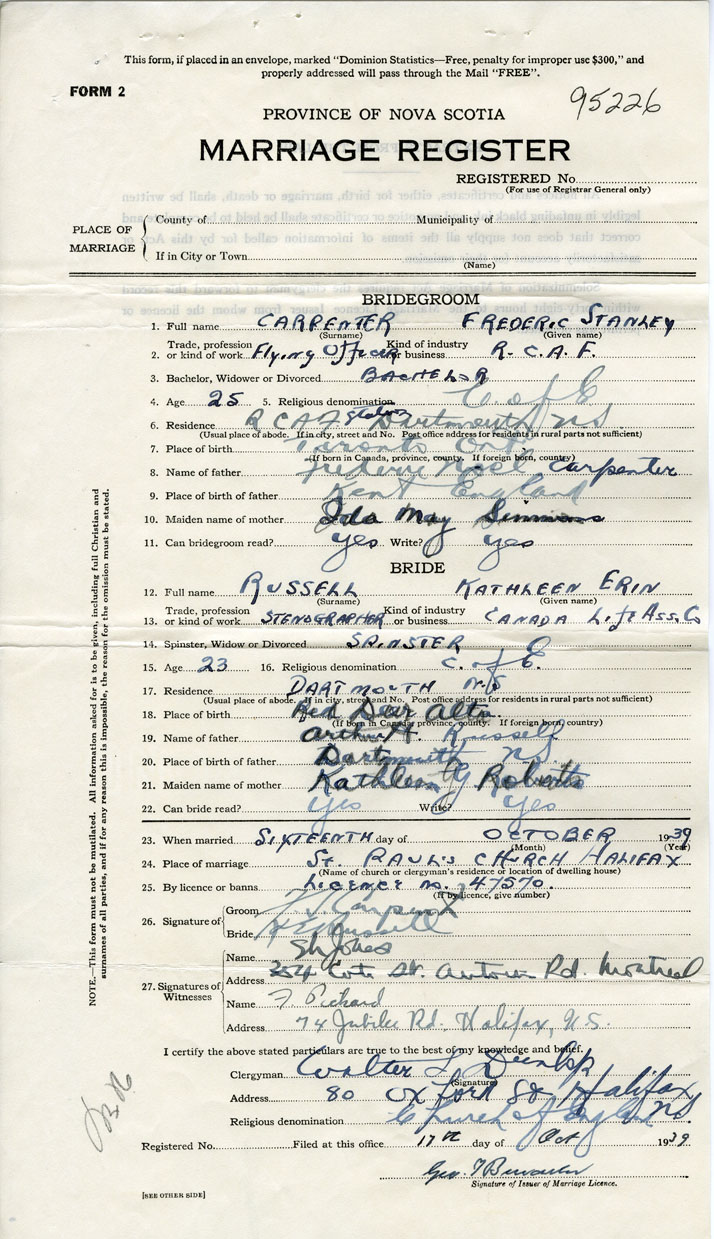 This form, if placed in an envelope, marked "Dominion Statistics—Free, penalty for improper use $300," and
properly addressed will pass through the Mail "FREE".
FORM 2
95226
PROVINCE OF NOVA SCOTIA
MARRIAGE REGISTER
REGISTERED No.
(For use of Registrar General only)
PLACE OF MARRIAGE
County of Municipality of
If in City or Town
(Name)
BRIDEGROOM
1. Full name CARPENTER FREDERIC STANLEY
(Surname) (Given name)
Trade, profession Kind of industry
2. or kind of work Flying Officer or business R. C. A. F.
3. Bachelor, Widower or Divorced BACHELOR
4. Age 25 5. Religious denomination C. of E
6. Residence R C A F Station Dartmouth NS
(Usual place of abode. If in city, street and No. Post office address for residents in rural parts not sufficient)
7. Place of birth Toronto Ont
(If born in Canada, province, county. If foreign born, country)
8. Name of father Frederic Noel Carpenter
9. Place of birth of father Kent England
10. Maiden name of mother Ida May Simmons
11. Can bridegroom read? yes Write? yes
BRIDE
12. Full name RUSSELL KATHLEEN ERIN
(Surname) (Given name)
Trade, profession Kind of industry
13. or kind of work STENOGRAPHER or business CANADA Life Ass. Co
14. Spinster, Widow or Divorced SPINSTER
15. Age 23 16. Religious denomination C. of E.
17. Residence DARTMOUTH N.S
(Usual place of abode. If in city, street and No. Post office address for residents in rural parts not sufficient)
18. Place of birth Red Deer Alta.
(If born in Canada, province, county. If foreign born, country)
19. Name of father Arthur H. Russell
20. Place of birth of father Dartmouth NS
21. Maiden name of mother Kathleen G Roberts
22. Can bride read? yes Write? yes
23. When married SIXTEENTH day of OCTOBER 1939
(Month) (Year)
24. Place of marriage St. PAUL'S CHURCH HALIFAX
(Name of church or clergyman's residence or location of dwelling house)
25. By licence or banns Licence no. 47570
(If by licence, give number)
26. Signature of
Groom
Bride K E Russell
27. Signatures of Witnesses
Name Jones
Address 254 Cote St. Antoine Rd. Montreal
Name F. Pichard
Address 74 Jubilee Rd. Halifax, N.S.
I certify the above stated particulars are true to the best of my knowledge and belief.
Clergyman Walter L Dunlop
(Signature)
Address 80 Oxford St Halifax
Religious denomination Church of England NS
Registered No. Filed at this office 17th day of Oct 1939
Geo.
Signature of Issuer of Marriage Licence.
[SEE OTHER SIDE]
NOTE.—This form must not be mutilated. All information asked for is to be given, including full Christian and
surnames of all parties, and if for any reason this is impossible, the reason for the omission must be stated.